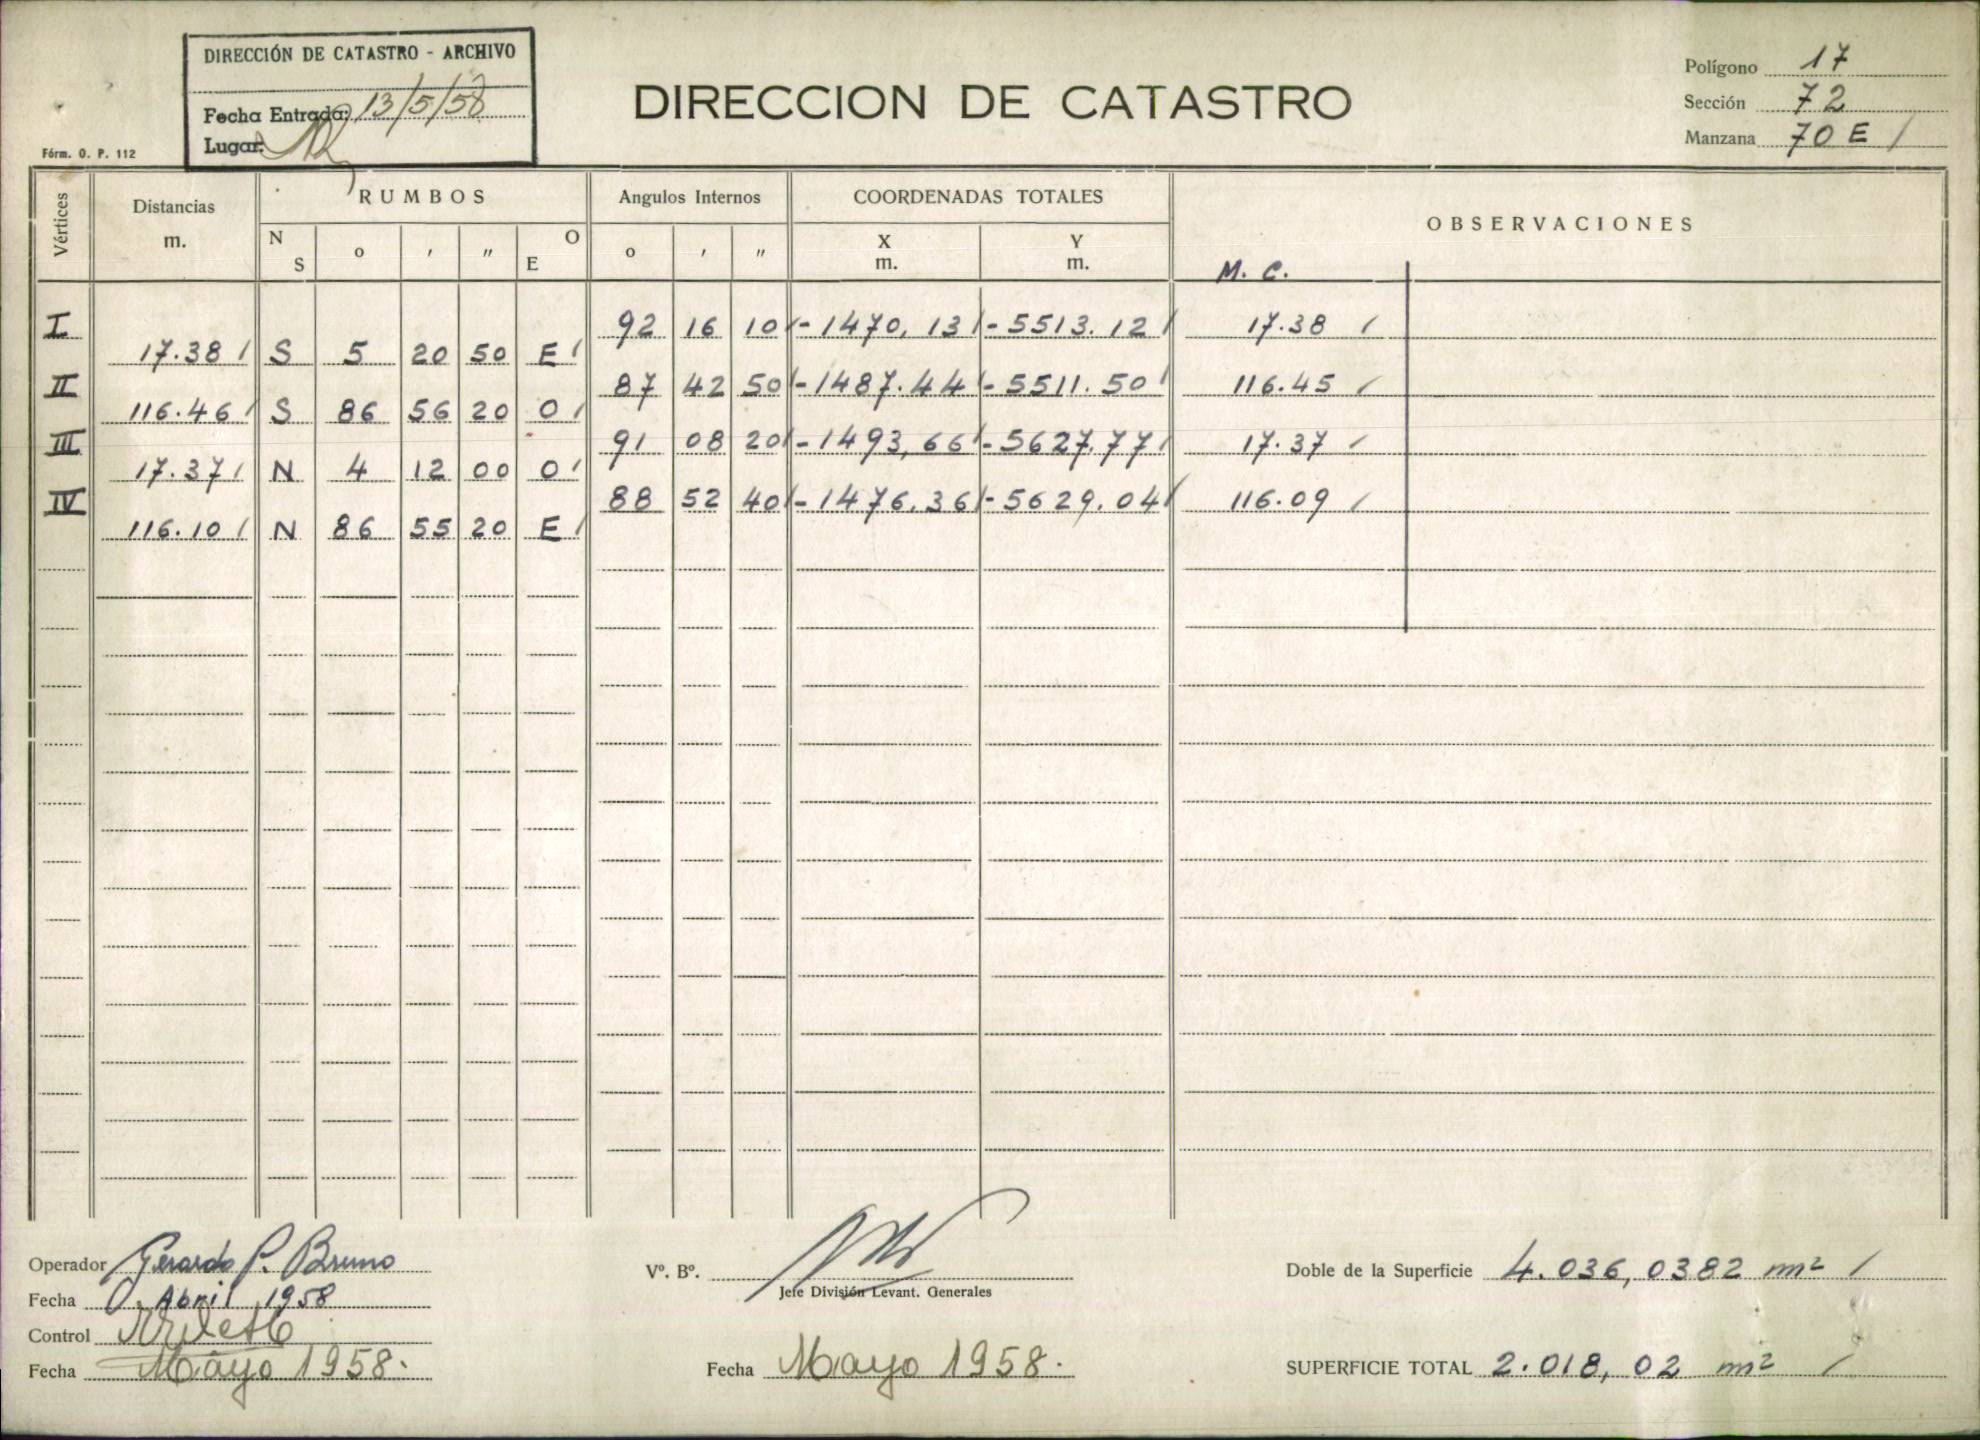 DIRECCIÓN DE CATASTRO - ARCHIVO
Fecha Entrada: 13/5/58
Lugar:
Fórm. O. P. 112
DIRECCION DE CATASTRO
Polígono 17
Sección 72
Manzana 70 E /
Vértices
Distancias
m.
RUMBOS
N S ° ' " E O
Angulos Internos
° ' "
COORDENADAS TOTALES
X m. Y m.
OBSERVACIONES
M. C.
I 92 16 10 / - 1470, 13 / - 5513. 12 / 17.38 /
17.38 / S 5 20 50 E /
II 87 42 50 / - 1487. 44 - 5511. 50 / 116.45 /
116.46 / S 86 56 20 O /
III 91 08 20 / - 1493, 66 / - 5627. 77 / 17.37 /
17.37 / N 4 12 00 O /
IV 88 52 40 / - 1476. 36 / - 5629. 04 / 116.09 /
116.10 / N 86 55 20 E /
Operador Gerardo P. Bruno
Fecha Abril 1958
Control
Fecha Mayo 1958.
V°. B°.
Jefe División Levant. Generales
Fecha Mayo 1958.
Doble de la Superficie 4.036, 0382 m² /
SUPERFICIE TOTAL 2.018, 02 m² /